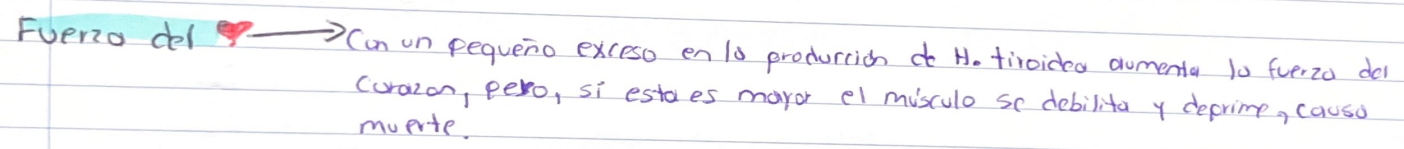 Fuerza del ❤ → Con un pequeño exceso en la producción de H. tiroidea aumenta la fuerza del
corazon, pero, si esta es mayor el músculo se debilita y deprime, causa
muerte.